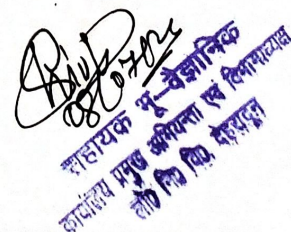 08/07/2020
सहायक भू-वैज्ञानिक
कार्यालय प्रमुख अभियन्ता एवं विभागाध्यक्ष
लो० नि० वि०, देहरादून